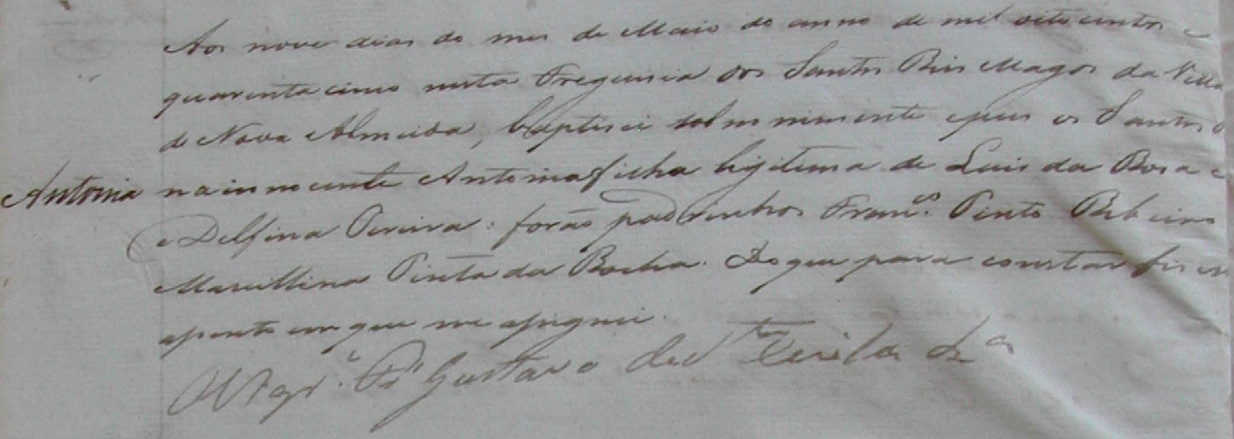 Aos nove dias do mes de Maio do anno de mil oito centos e
quarenta cinco nesta Freguesia dos Santos Reis Magos da Villa
de Nova Almeida, baptisei solemnimente e puz os Santos
Antonia na innocente Antonia filha legitima de Luis da Rosa
e Delfina Pereira: forão padrinhos Fran.co Pinto Ribeiro
Marcellina Pinta da Rocha. Do que para constar fis
apento em que me apignei.
Gustavo